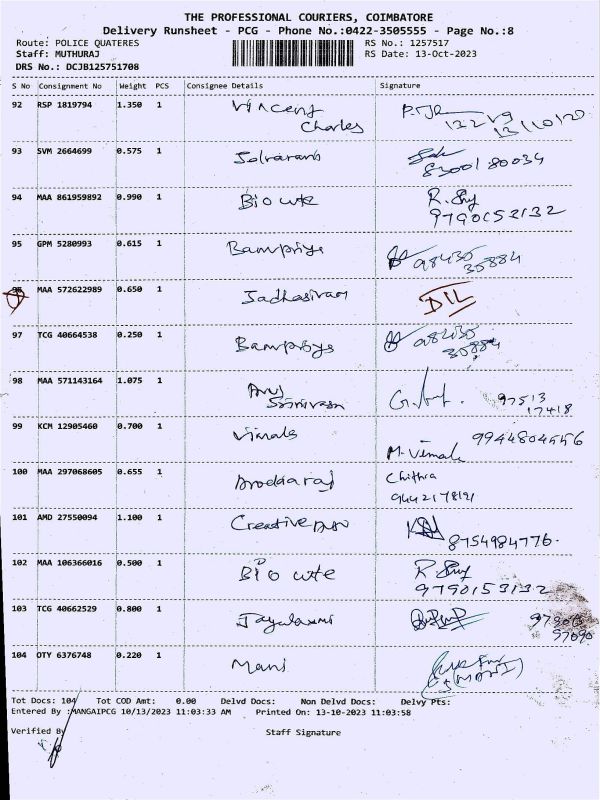 THE PROFESSIONAL COURIERS, COIMBATORE
Delivery Runsheet - PCG - Phone No.:0422-3505555 - Page No.:8
Route: POLICE QUATERES RS No.: 1257517
Staff: MUTHURAJ RS Date: 13-Oct-2023
DRS No.: DCJB125751708
S No Consignment No Weight PCS Consignee Details Signature
92 RSP 1819794 1.350 1 Vincent
Charles
93 SVM 2664699 0.575 1
83001 80034
94 MAA 861959892 0.990 1 Bio wte R.
9790153132
95 GPM 5280993 0.615 1 Bampriya 98430
30884
MAA 572622989 0.650 1 Sadhasivam DIL
97 TCG 40664538 0.250 1 Bampriya 98430
30884
98 MAA 571143164 1.075 1 97513
Srinivasan 17418
99 KCM 12905460 0.700 1 Vimala 9944804556
M. Vimala
100 MAA 297068605 0.655 1 Chithra
9442178191
101 AMD 27550094 1.100 1 Creative
8754984776.
102 MAA 106366016 0.500 1 Bio wte R.
9790153132
103 TCG 40662529 0.800 1 Jayalaxmi
104 OTY 6376748 0.220 1 Mani
(MANI)
Tot Docs: 104 Tot COD Amt: 0.00 Delvd Docs: Non Delvd Docs: Delvy Pts:
Entered By :MANGAIPCG 10/13/2023 11:03:33 AM Printed On: 13-10-2023 11:03:58
Verified By Staff Signature